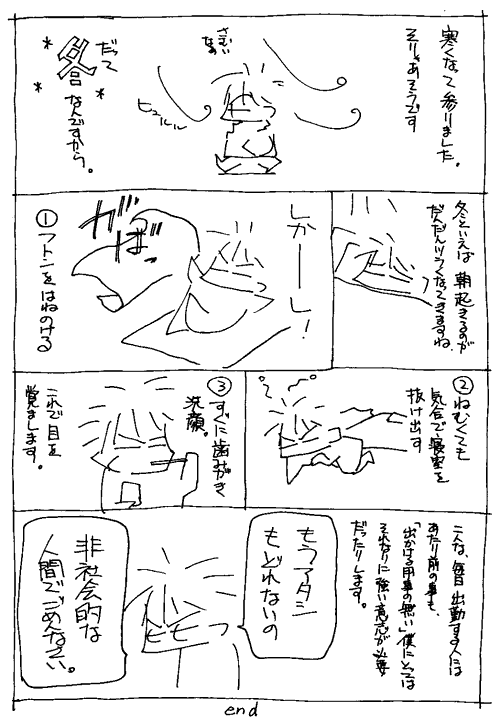 寒くなって参りました。
そりゃあそうです
さむい
なぁ
ヒュルル
だって
冬
なんですから。
冬といえば 朝起きるのが
だんだんツラくなってきますね。
しかーし!
がばっ
①フトンをはねのける
②ねむくても
気合で寝室を
抜け出す
③すぐに歯みがき
洗顔。
これで目を
覚まします。
こんな、毎日 出勤する人には
あたり前の事も、
「出かける用事の無い」僕にとっては
それなりに強い意志が必要
だったりします。
もうアタシ
もどれないの
非社会的な
人間でごめんなさい。
end